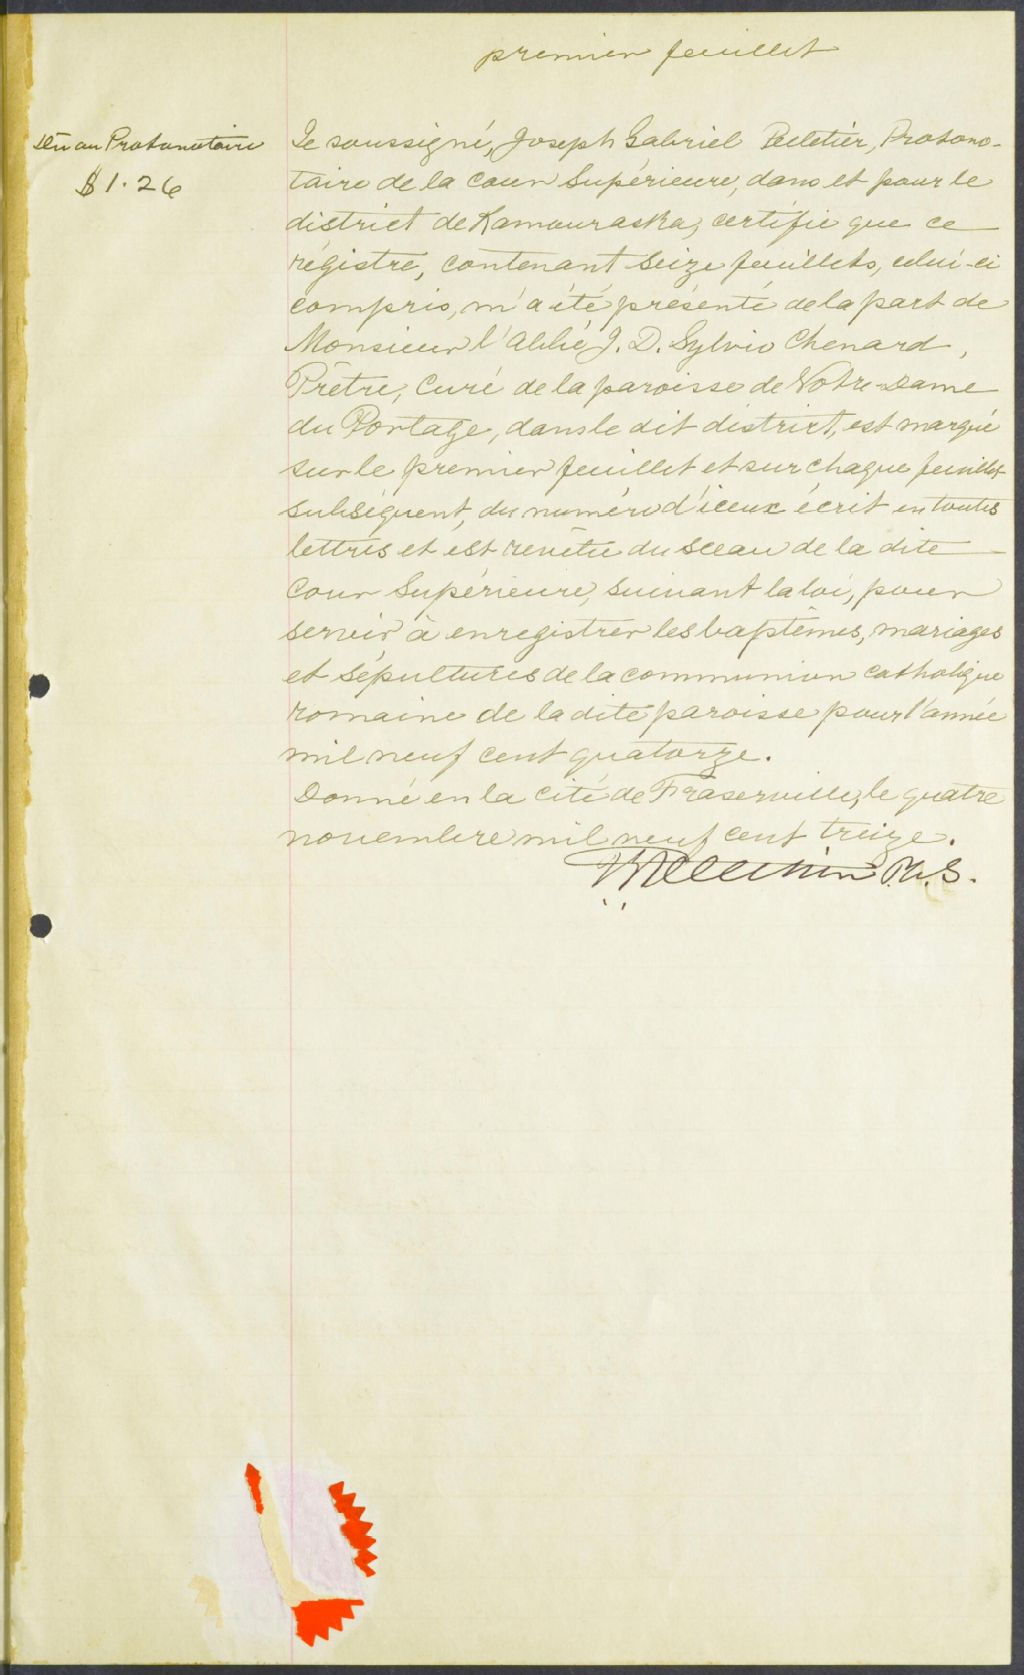 premier feuillet
Dû au Protonotaire
$1.26
Je soussigné, Joseph Gabriel Pelletier, Protono-
taire de la Cour Supérieure, dans et pour le
district de Kamouraska, certifie que ce
régistre, contenant seize feuillets, celui-ci
compris, m'a été présenté de la part de
Monsieur l'Abbé J. D. Sylvio Chenard,
Prêtre, Curé de la paroisse de Notre-Dame
du Portage, dans le dit district, est marqué
sur le premier feuillet et sur chaque feuillet
subséquent, du numéro d'iceux écrit en toutes
lettres et est revêtu du sceau de la dite
Cour Supérieure, suivant la loi, pour
servir à enregistrer les baptêmes, mariages
et sépultures de la communion catholique
romaine de la dite paroisse pour l'année
mil neuf cent quatorze.
Donné en la cité de Fraserville, le quatre
novembre mil neuf cent treize.
P.C.S.